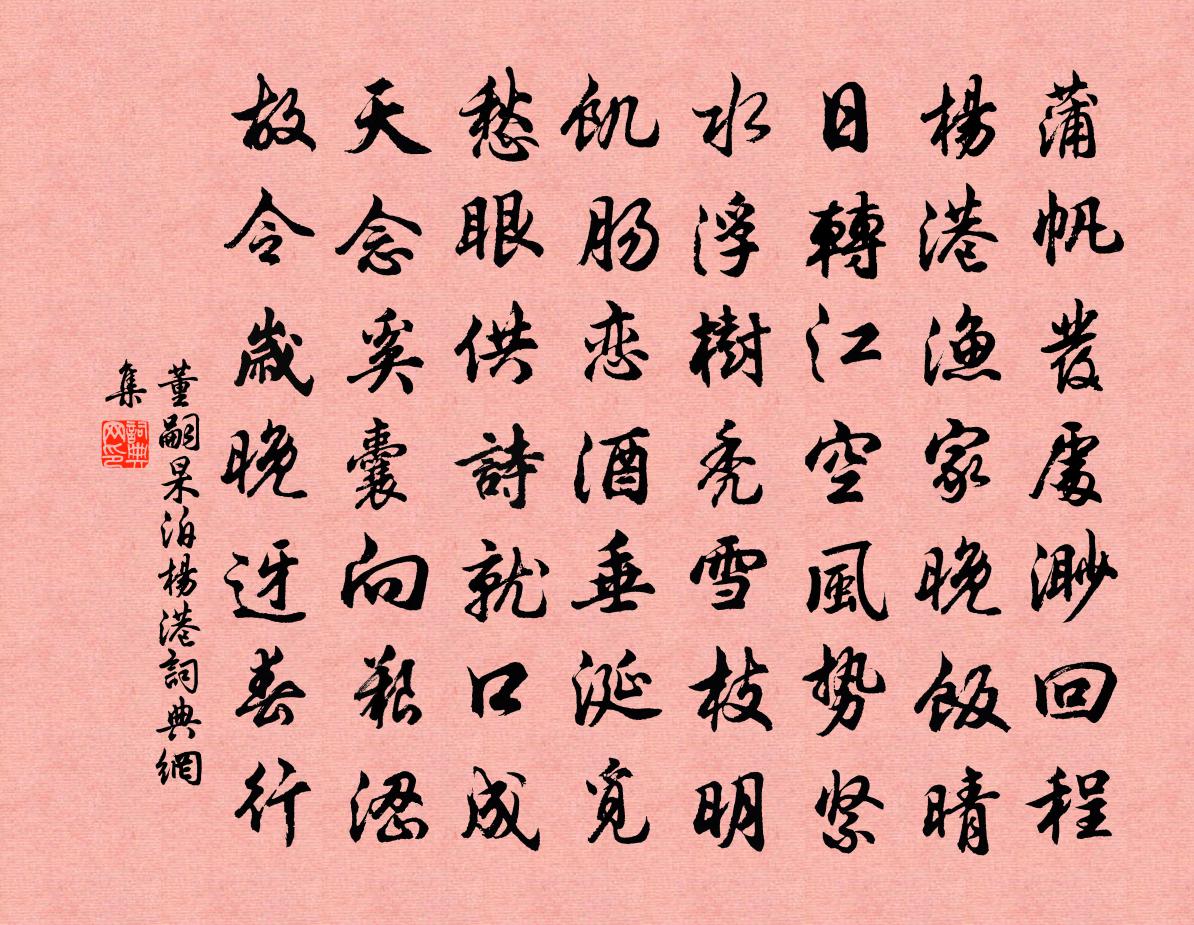 蒲帆發處渺回程
楊港漁家晚飯晴
日轉江空風勢緊
水浮樹禿雪枝明
飢腸恋酒垂涎覓
愁眼供詩就口成
天念奚囊向艱澀
故令歲晚迓春行
董嗣杲泊楊港詞典網
集
詞典
网印